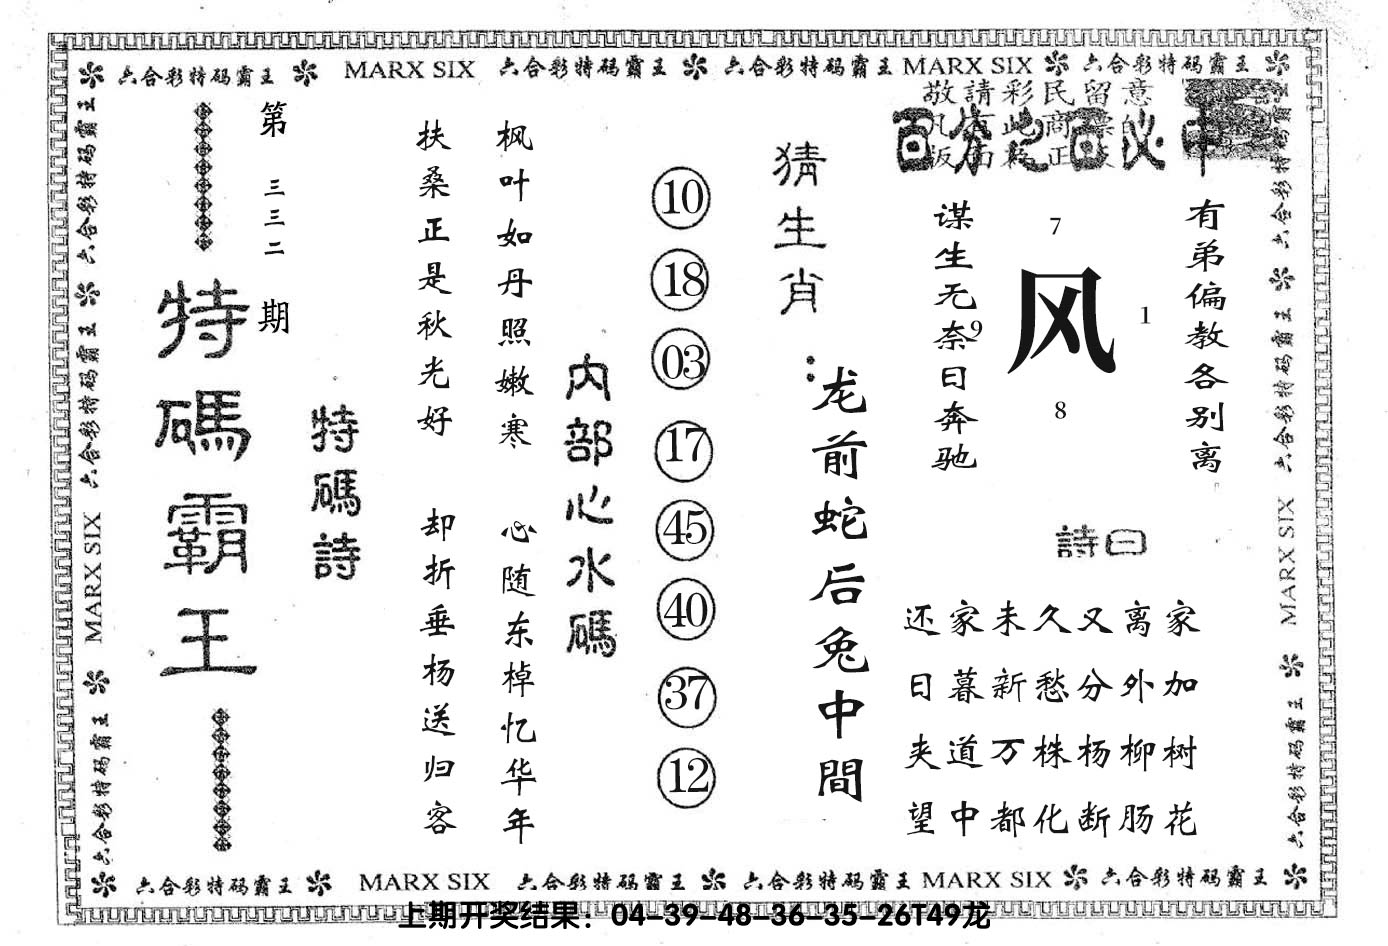 六合彩特码霸王 MARX SIX 六合彩特码霸王 六合彩特码霸王 MARX SIX 六合彩特码霸王
敬請彩民留意
百分之百必中
有弟偏教各别离
谋生无奈日奔驰
7
风
9
1
8
詩曰
还家未久又离家
日暮新愁分外加
夹道万株杨柳树
望中都化断肠花
猜生肖：
龙前蛇后兔中間
10
18
03
17
45
40
37
12
内部心水碼
枫叶如丹照嫩寒 心随东棹忆华年
扶桑正是秋光好 却折垂杨送归客
特碼詩
第三三二期
特碼霸王
六合彩特码霸王 六合彩特码霸王 MARX SIX 六合彩特码霸王
六合彩特码霸王 六合彩特码霸王 MARX SIX 六合彩特码霸王
六合彩特码霸王 MARX SIX 六合彩特码霸王 六合彩特码霸王 MARX SIX 六合彩特码霸王
上期开奖结果：04-39-48-36-35-26T49龙